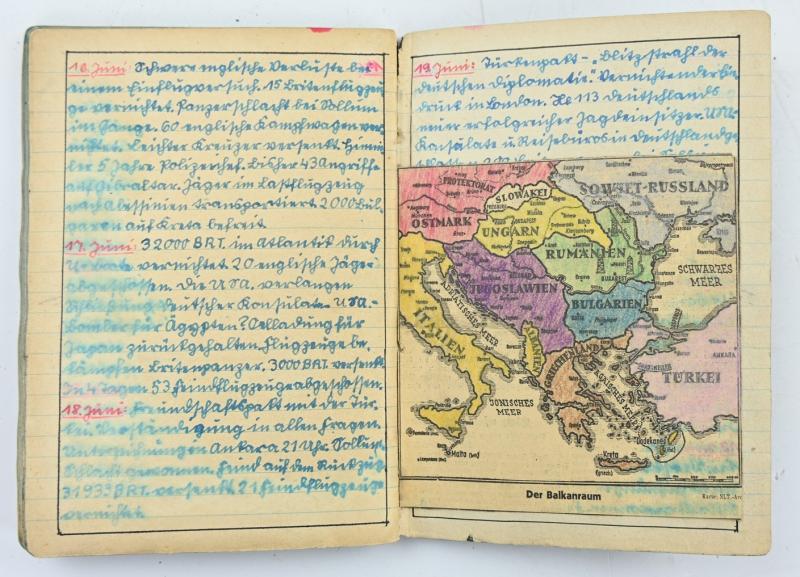 16. Juni: Schwere englische Verluste bei
einem Einflugversuch. 15 Britenflugzeu-
ge vernichtet. Panzerschlacht bei Sollum
im Gange. 60 englische Kampfwagen ver-
nichtet. Leichter Kreuzer versenkt. Himm-
ler 5 Jahre Polizeichef. Bisher 43 Angriffe
auf Gibraltar. Jäger im Lastflugzeug
nach Abessinien transportiert. 2000 Bul-
garen auf Kreta befreit.
17. Juni: 32000 BRT. im Atlantik durch
U-Boote vernichtet. 20 englische Jäger
abgeschossen. Die USA. verlangen
Schließung deutscher Konsulate. USA.-
Bomber für Ägypten? Öelladung für
Japan zurückgehalten. Flugzeuge be-
kämpfen Britenpanzer. 3000 BRT. versenkt.
In 4 Tagen 53 Feindflugzeuge abgeschossen.
18. Juni: Freundschaftspakt mit der Tür-
kei. Verständigung in allen Fragen.
Unterzeichnung in Ankara 21 Uhr. Sollum-
schlacht gewonnen. Feind auf dem Rückzug.
31933 BRT. versenkt. 21 Feindflugzeuge
vernichtet.
19. Juni: Türkenpakt - „Blitzstrahl der
deutschen Diplomatie". Vernichtender Ein-
druck in London. No 113 Deutschlands
neuer erfolgreicher Jagdeinsitzer. USA.
Konsulate u. Reisebüros in Deutschland ge-
PROTEKTORAT
SLOWAKEI
SOWJET-RUSSLAND
OSTMARK
UNGARN
RUMÄNIEN
BUKAREST
SCHWARZES
MEER
JUGOSLAWIEN
BULGARIEN
ADRIATISCHES MEER
ITALIEN
ALBANIEN
GRIECHENLAND
ANKARA
TÜRKEI
IONISCHES
MEER
ÄGÄISCHES MEER
Dodekanes
(ital.)
Malta (brit.)
Kreta
(griech)
Der Balkanraum
Karte: NLT.-Arc